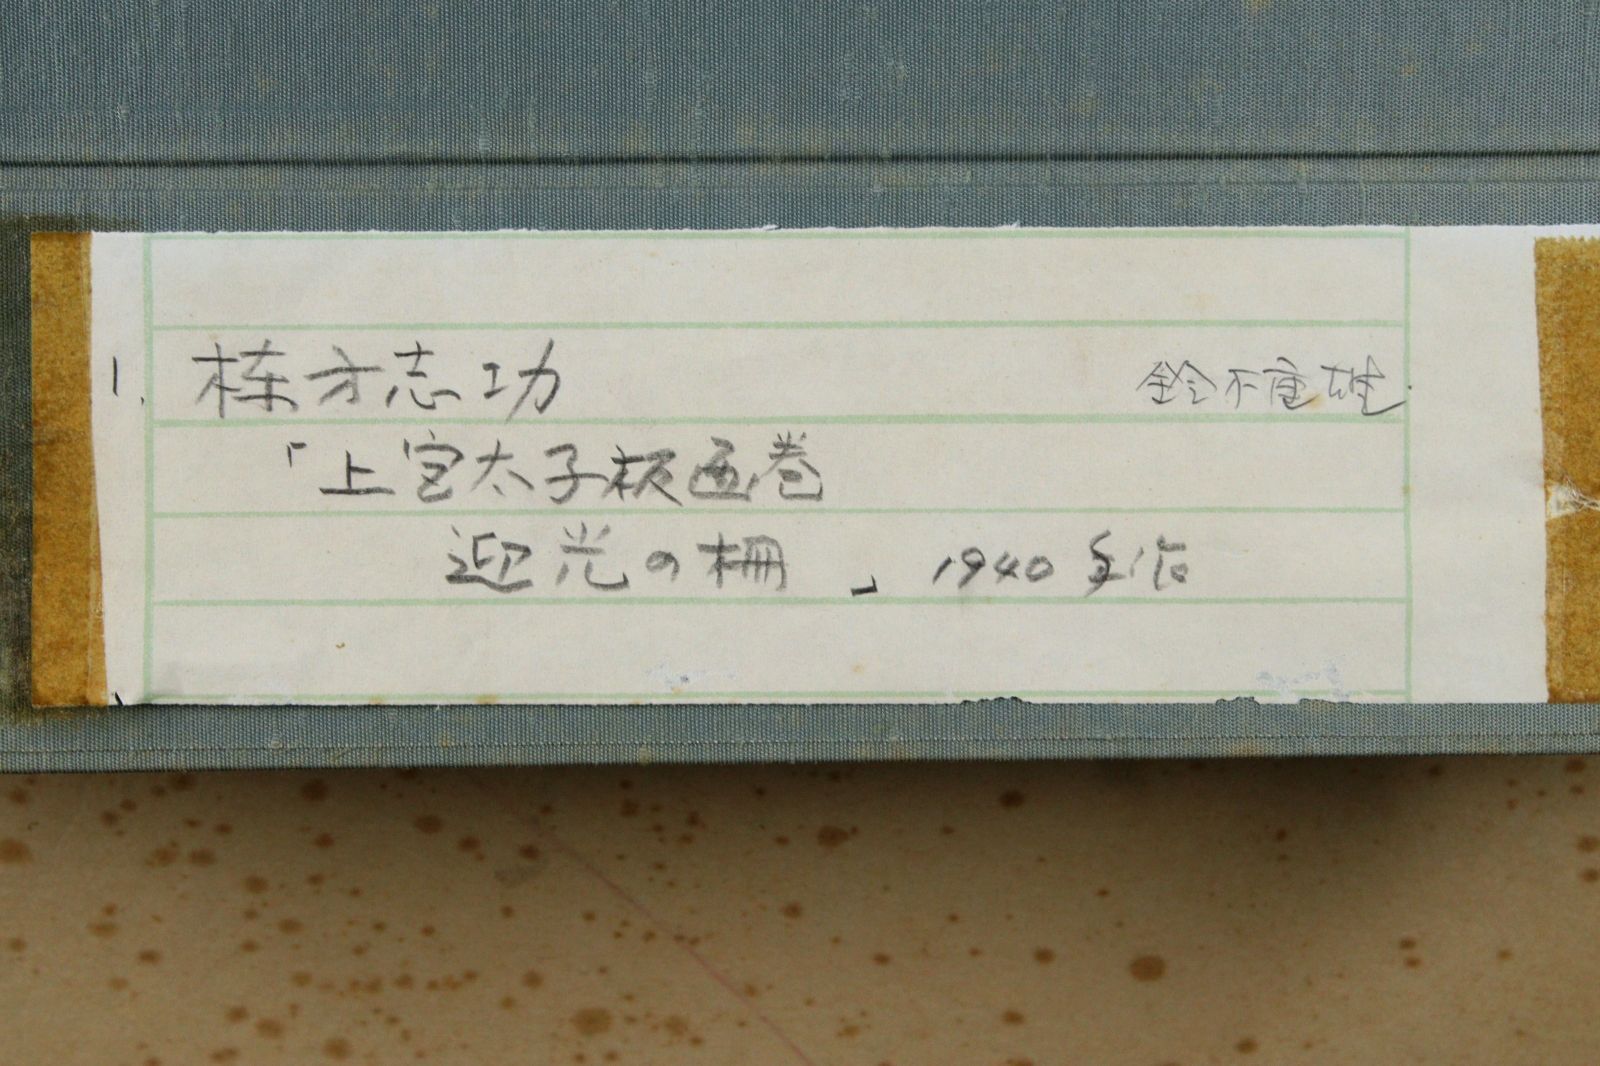 1. 棟方志功 鈴木重雄
「上宮太子板画巻
迎光の柵」 1940年作